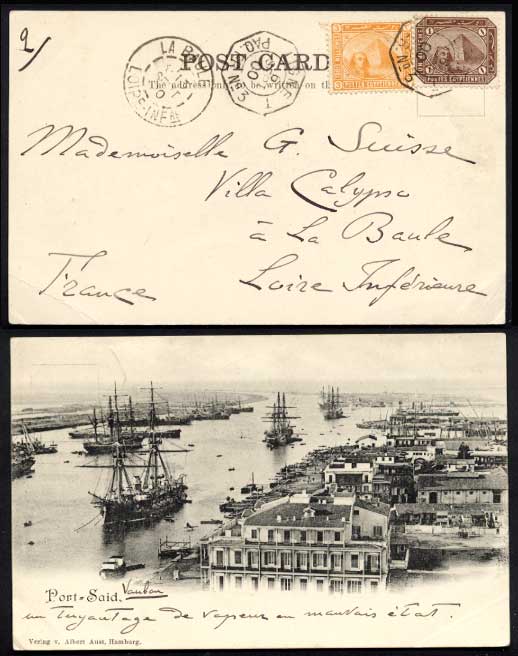 2/
POST CARD
The address only to be written on th
LA BAULE
LOIRE-INFRE
PAQ. FR. Nº3
POSTES EGYPTIENNES
POSTES EGYPTIENNES
Mademoiselle G. Suisse
Villa Calypso
à La Baule
France
Loire Inférieure
Port-Said. Vauban
de vapeur en mauvais état.
Verlag v. Albert Aust, Hamburg.